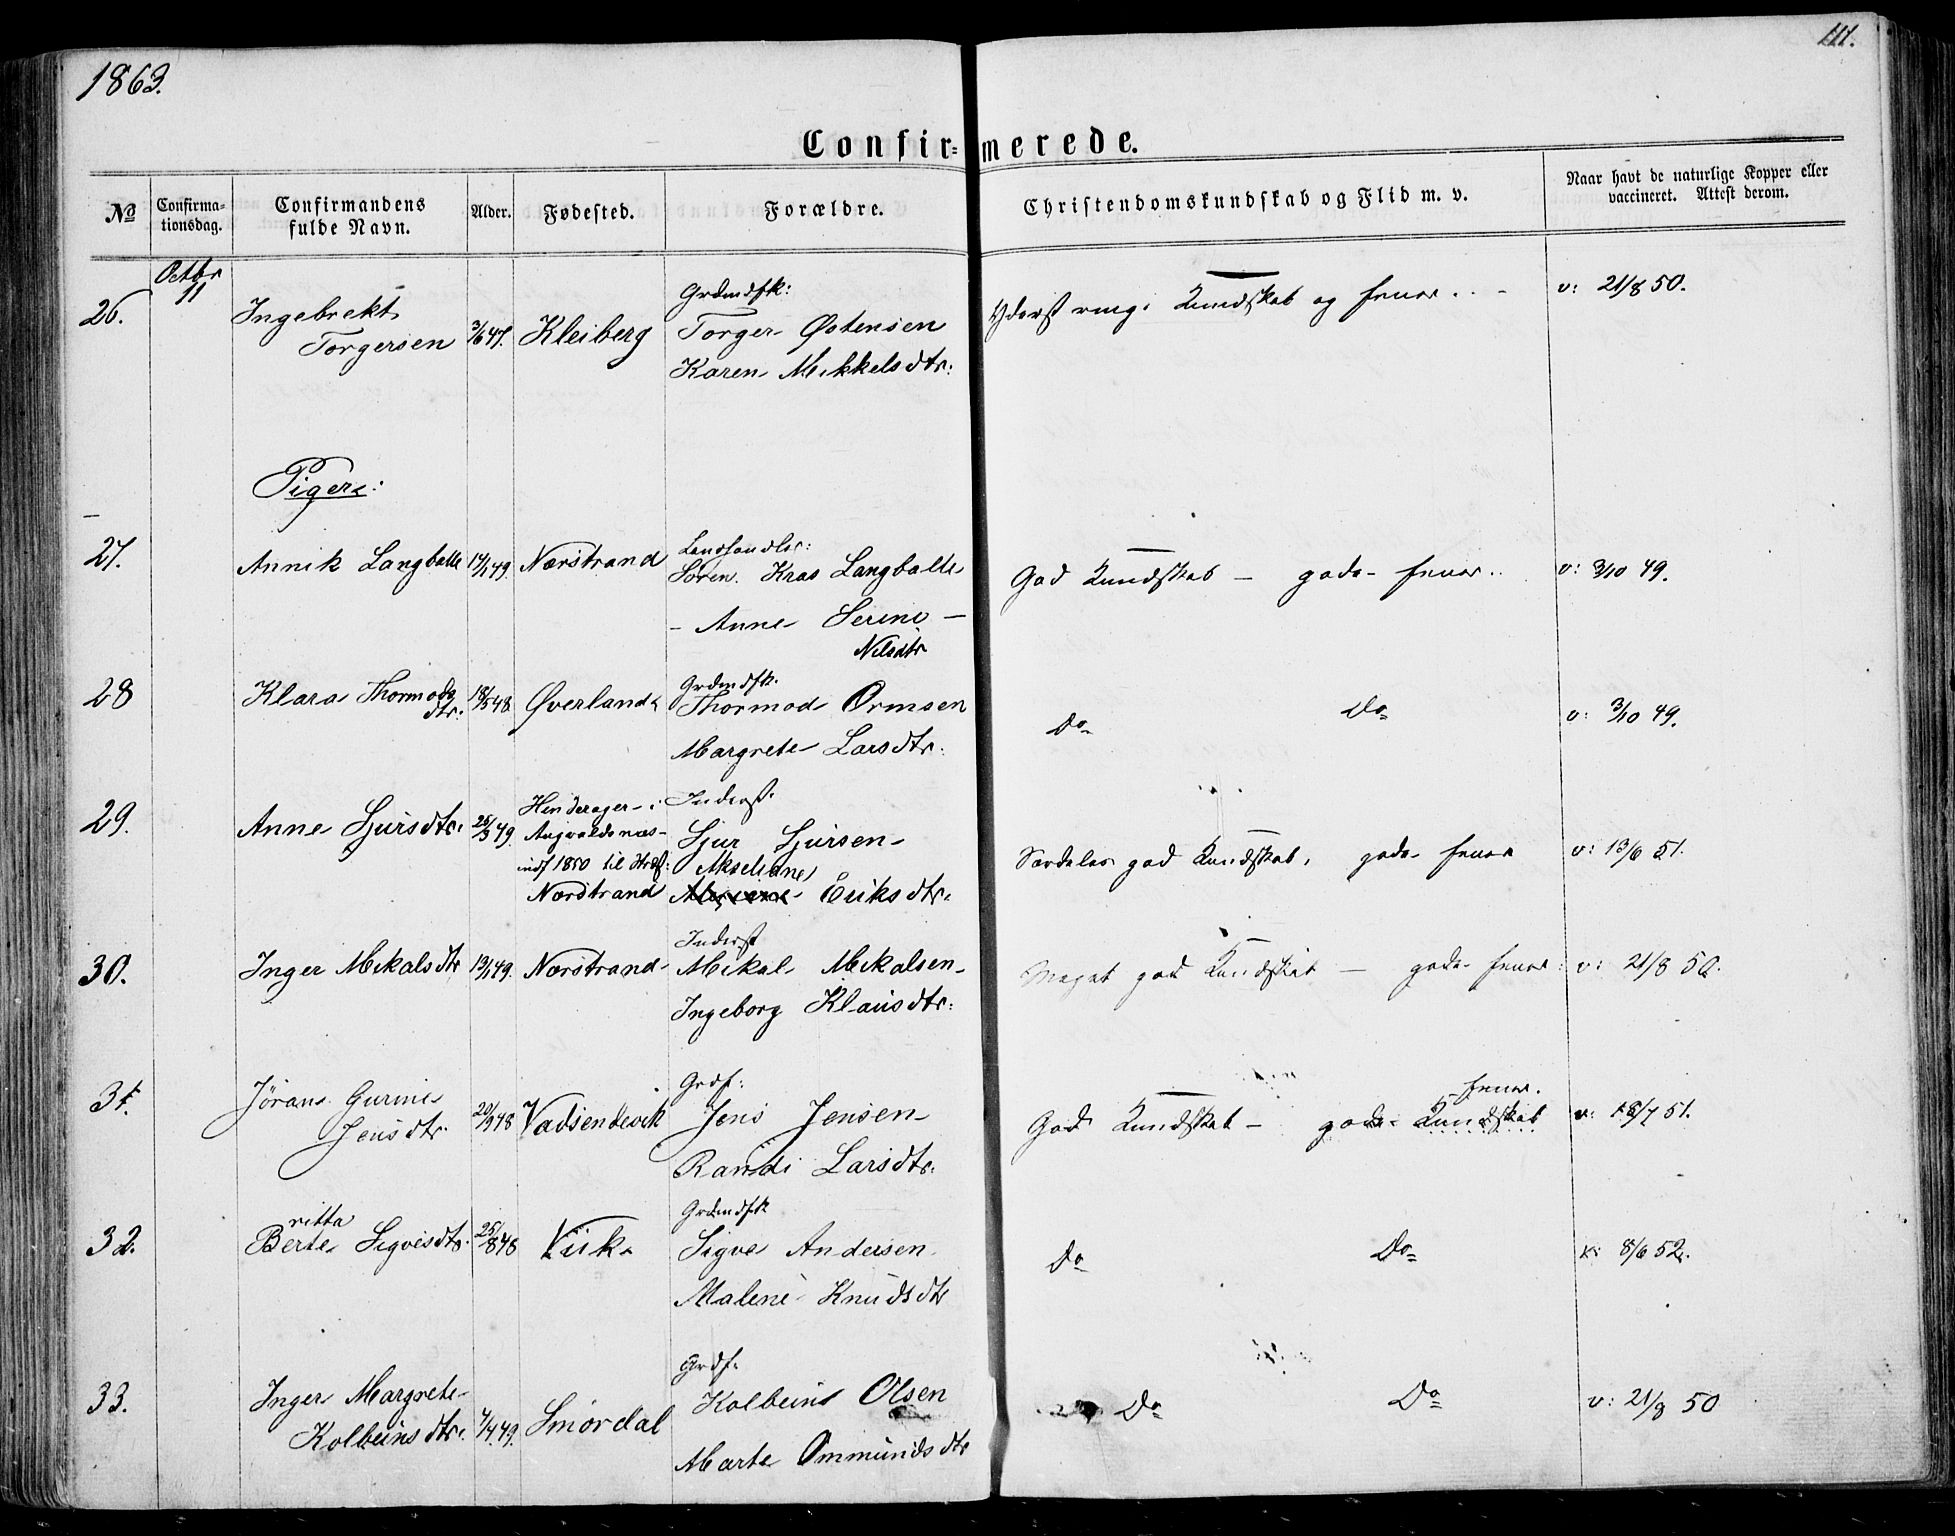 1863.
111.
Confirmerede.
No
Confirmationsdag.
Confirmandens fulde Navn.
Alder.
Fødested.
Forældre.
Christendomskundskab og Flid m. v.
Naar havt de naturlige Kopper eller vaccineret. Attest derom.
26. Octbr 11
Ingebrekt
Torgersen
3/6 47.
Kleiberg
Grdmdsk:
Torger Østensen
Karen Mikkelsdtr:
Yderst ring. Kundskab og
v: 21/8 50.
Piger:
27.
Annik Langballe
14/1 49.
Nærstrand
Landhandler:
Søren Kras Langballe
- Anne Serine -
Nilsdtr
God Kundskab - gode
v: 3/10 49.
28
Klara Thormods
dtr:
18/5 48.
Øverland
Grdmdsk.
Thormod Ormsen
Margrete Larsdtr:
Do
Do
v: 3/10 49.
29.
Anne Sjursdtr.
25/3 49.
Hinderager i
Augvaldsnæs
indf 1850 til
Nærstrand
Inderst.
Sjur Sjursen
Akseliane
Eriksdtr.
Særdeles god Kundskab, gode
v: 13/6 51.
30.
Inger Mikalsdtr
13/1 49.
Nærstrand
Inderst
Mikal Mikalsen
Ingeborg Klausdtr:
Meget god Kundskab - gode
v: 21/8 50.
31.
Jøran Gurine
Jensdtr.
20/9 48
Vadsendevik
Grdf:
Jens Jensen
Randi Larsdtr.
God Kundskab - gode Kundskab
v: 18/7 51.
32.
ritta
Berte Sigvesdtr.
25/8 48
Viik
Grdmdsk
Sigve Andersen
Malene Knudsdtr
Do
Do
8/6 52.
33.
Inger Margrete
Kolbeinsdtr.
7/4 49.
Smørdal
Grdf.
Kolbein Olsen
Marte Ommundsdtr
Do
Do
v: 21/8 50